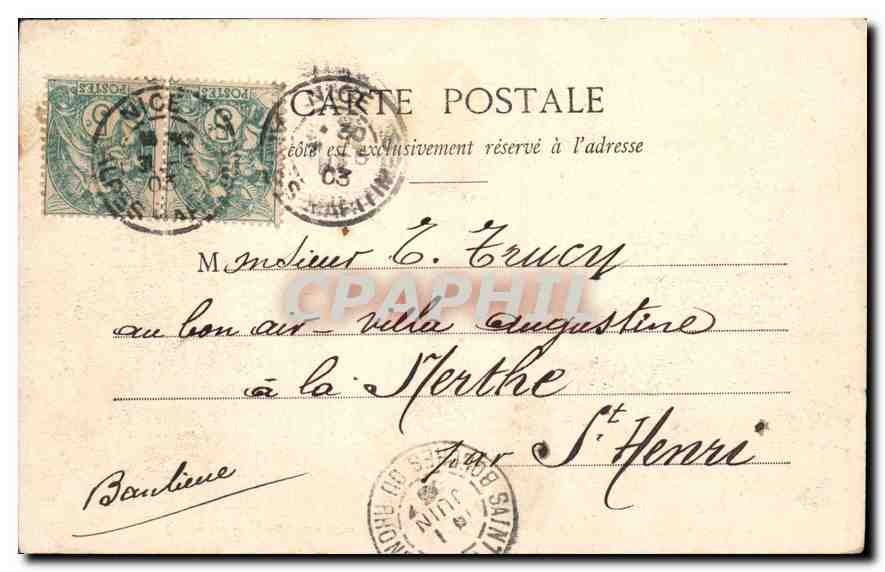 CARTE POSTALE
côté est exclusivement réservé à l'adresse
POSTES POSTES
5 5
NICE
03
NICE
30
03
Monsieur E. Trucy
CPAPHIL
au bon air - villa Augustine
à la Nerthe
par St. Henri
Banlieue
SAINT
JUIN
BOUCHES DU RHÔNE